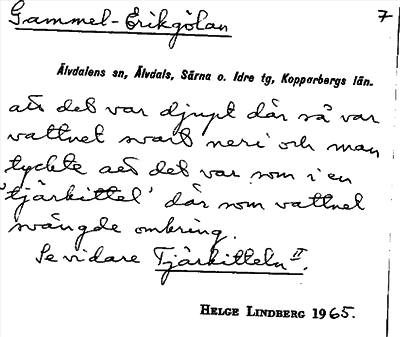 Gammel-Erikgölan
7
Älvdalens sn, Älvdals, Särna o. Idre tg, Kopparbergs län.
att det var djupt där så var
vattnet svart neri och man
tyckte att det var som i en
'tjärkittel' där som vattnet
svängde omkring.
Se vidare Tjärkitteln II.
HELGE LINDBERG 1965.